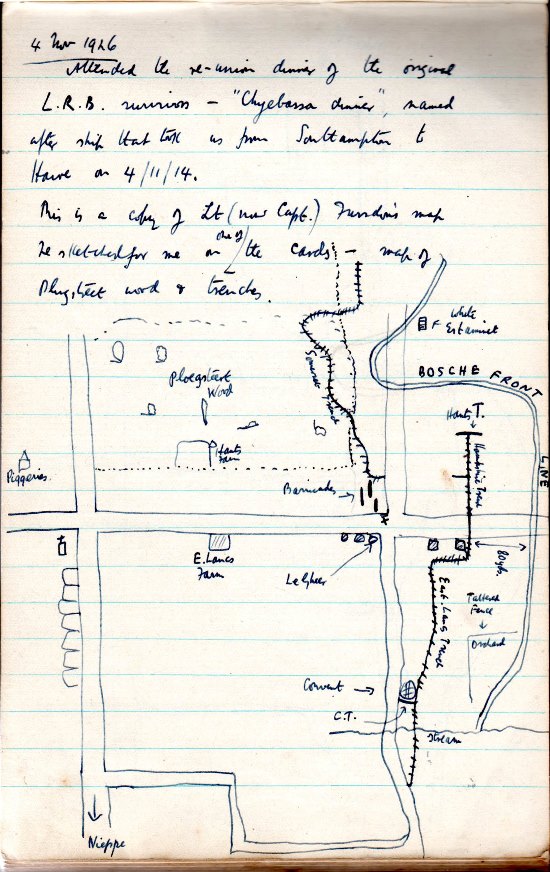 4 Nov 1926
Attended the re-union dinner of the original
L.R.B. survivors – "Chyebassa dinner", named
after ship that took us from Southampton to
Havre on 4/11/14.
This is a copy of Lt (now Capt.) map
he sketched for me on one of the cards – map of
Plugstreet wood & trenches.
White
Estaminet
BOSCHE FRONT
LINE
Somerset Trench
Ploegsteert
Wood
Hants
Farm
Hants T.
Hampshire Trench
Piggeries.
Barricades
E. Lancs
Farm
Le Gheer
80 yds.
East Lancs Trench
Tattered
Fence
Orchard
Convent
C.T.
Stream
Nieppe